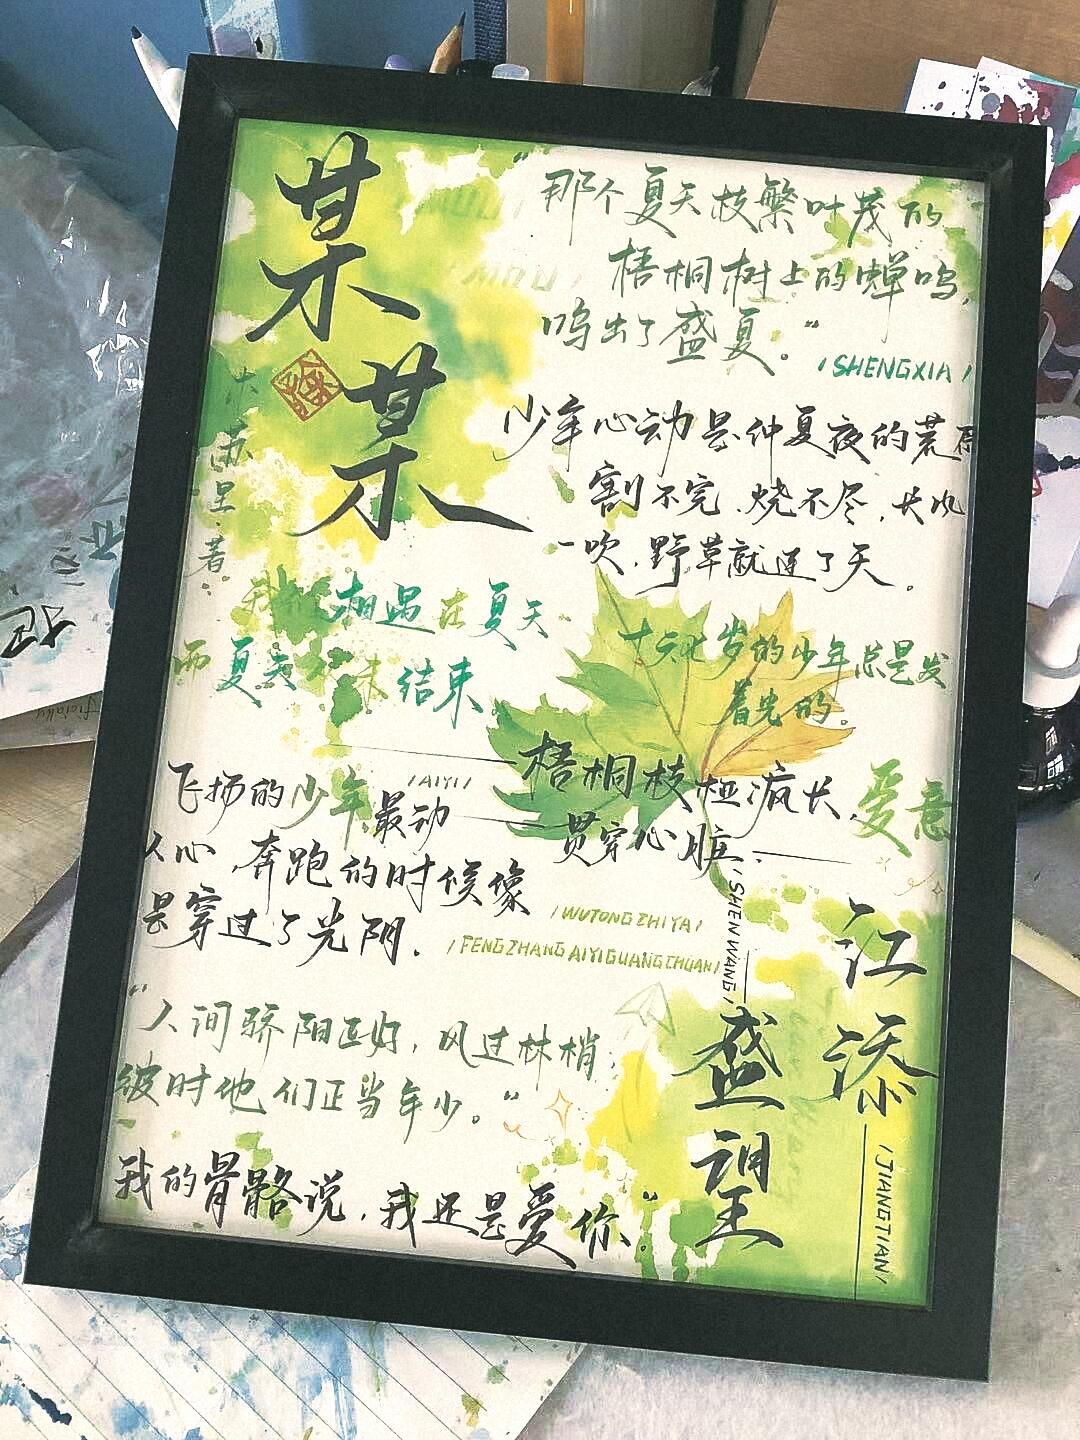 某某
木苏里·著
"那个夏天枝繁叶茂的
梧桐树上的蝉鸣,
鸣出了盛夏。"
/SHENGXIA/
少年心动是仲夏夜的荒原
割不完,烧不尽,长风
一吹,野草就连了天。
我们相遇在夏天
而夏天 未结束
十六七岁的少年总是发
着光的。
梧桐枝桠疯长,爱意
贯穿心脏.
飞扬的少年最动
/AIYI/
人心,奔跑的时候像
是穿过了光阴.
/WUTONGZHIYA/
/FENGZHANGAIYIGUANGCHUAN/
"人间骄阳正好,风过林梢,
彼时他们正当年少。"
我的骨骼说,我还是爱你。"
江添
/JIANGTIAN/
盛望
/SHENWANG/